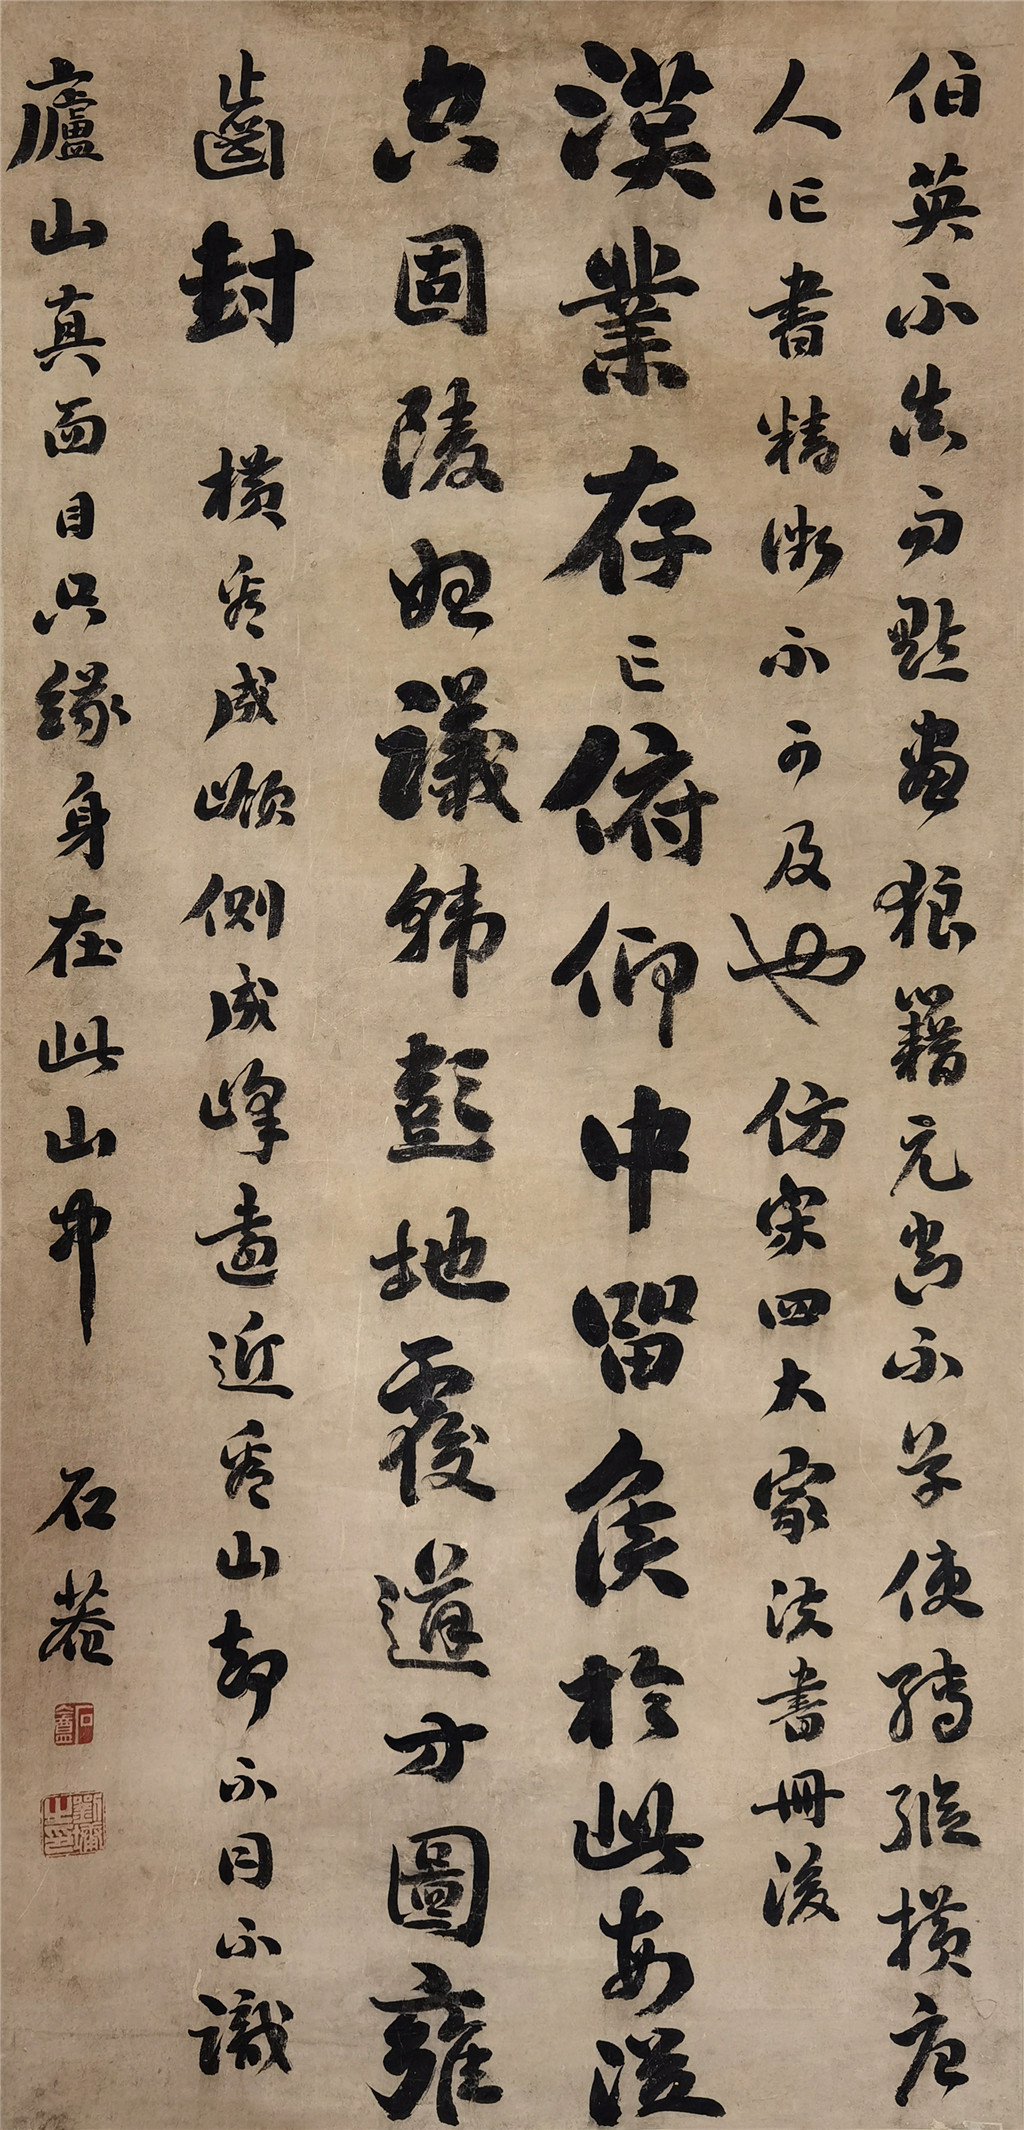 伯英不真而點畫狼籍元常不草使轉縱橫唐
人作書精微不可及也 仿宋四大家法書冊後
漢業存亡俯仰中留侯於此每從
容固陵始議韓彭地覆道方圖雍
齒封 橫看成嶺側成峰遠近看山都不同不識
廬山真面目只緣身在此山中 石菴
石盦
劉墉之印